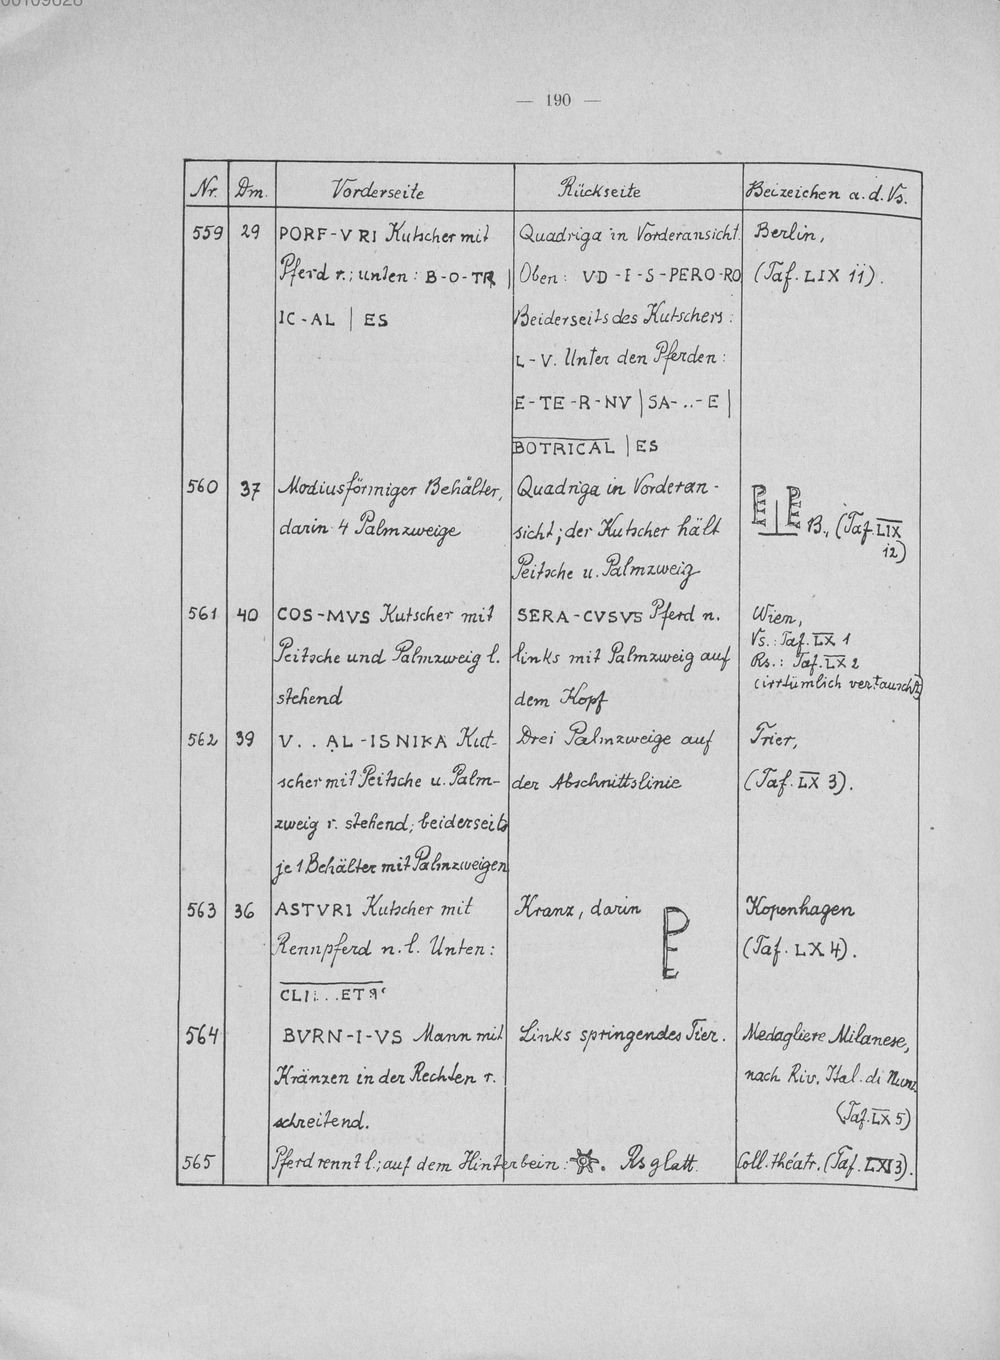 — 190 —
Nr. Dm. Vorderseite Rückseite Beizeichen a.d.Vs.
559 29 PORF-VRI Kutscher mit
Pferd r.; unten: B-O-TR |
IC-AL | ES
Quadriga in Vorderansicht.
Oben: VD-I-S-PERO-RO
Beiderseits des Kutschers:
L-V. Unter den Pferden:
E-TE-R-NV | SA-..-E |
BOTRICAL | ES
Berlin,
(Taf. LIX 11).
560 37 Modiusförmiger Behälter,
darin 4 Palmzweige
Quadriga in Vorderan-
sicht; der Kutscher hält
Peitsche u. Palmzweig
B., (Taf. LIX
12)
561 40 COS-MVS Kutscher mit
Peitsche und Palmzweig l.
stehend
SERA-CVSVS Pferd n.
links mit Palmzweig auf
dem Kopf
Wien,
Vs.: Taf. LX 1
Rs.: Taf. LX 2
(irrtümlich vertauscht)
562 39 V..AL-ISNIKA Kut-
scher mit Peitsche u. Palm-
zweig r. stehend; beiderseits
je 1 Behälter mit Palmzweigen
Drei Palmzweige auf
der Abschnittslinie
Trier,
(Taf. LX 3).
563 36 ASTVRI Kutscher mit
Rennpferd n. l. Unten:
Kranz, darin
Kopenhagen
(Taf. LX 4).
564 BVRN-I-VS Mann mit
Kränzen in der Rechten r.
schreitend.
Links springendes Tier.
Medagliere Milanese,
nach Riv. Ital. di Num.
(Taf. LX 5)
565 Pferd rennt l.; auf dem Hinterbein: . Rs glatt.
Coll. théatr. (Taf. LXI 3).